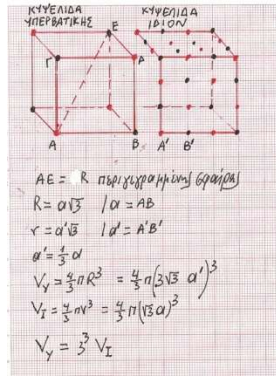 ΚΥΨΕΛΙΔΑ
ΥΠΕΡΒΑΤΙΚΗΣ
ΚΥΨΕΛΙΔΑ
ΙΔΙΟΝ
Ε
Γ
Ρ
Α
Β
Α'
Β'
ΑΕ = R περιγεγραμμένης σφαίρας
R = α√3 / α = ΑΒ
r = α'√3 / α' = Α'Β'
α' = 1/3 α
V_Y = 4/3 π R³ = 4/3 π (3√3 α')³
V_I = 4/3 π r³ = 4/3 π (√3 α)³
V_Y = 3³ V_I